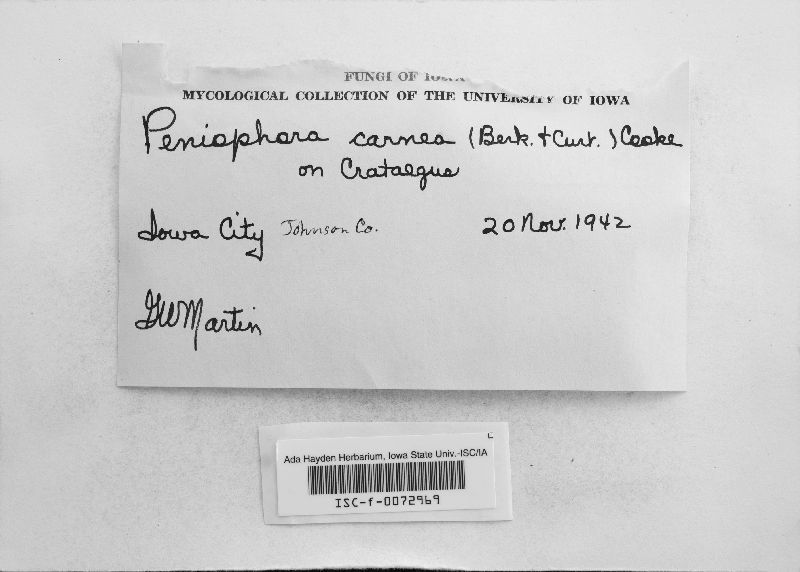 FUNGI OF IOWA
MYCOLOGICAL COLLECTION OF THE UNIVERSITY OF IOWA
Peniophora carnea (Berk. + Curt.) Cooke
on Crataegus
Iowa City Johnson Co. 20 Nov. 1942
GWMartin
Ada Hayden Herbarium, Iowa State Univ.-ISC/IA
ISC-f-0072969